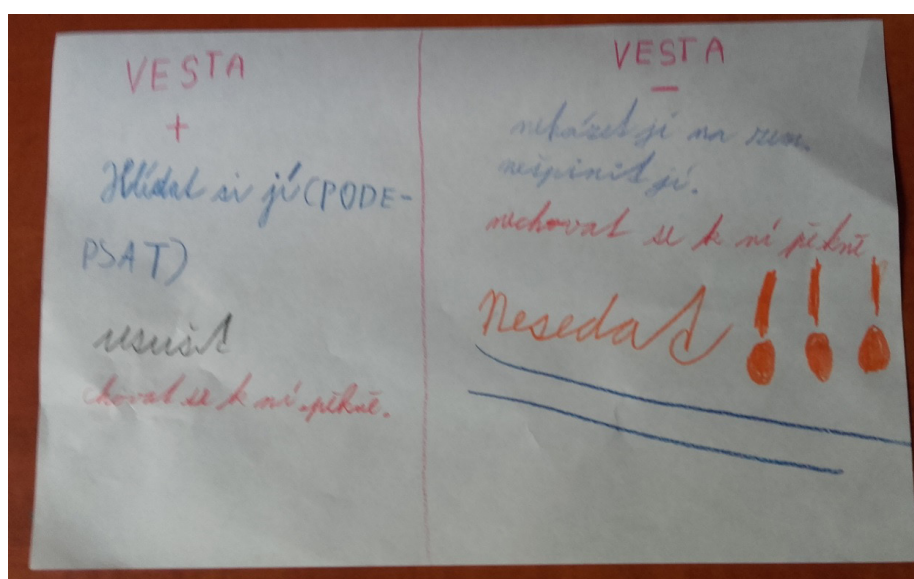 VESTA
+
Hlídat si jí (PODE-
PSAT)
usušit
chovat se k ní pěkně.
VESTA
–
neházet jí na zem.
nešpinit jí.
nechovat se k ní pěkně
Nesedat !!!